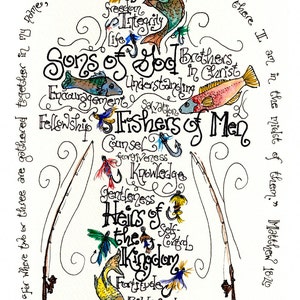 Freedom
Integrity
Life
Sons of God
Brothers
In Christ
Understanding
Encouragement
Salvation
Fellowship
Fishers of Men
Counsel
Forgiveness
Knowledge
Gentleness
Heirs of
the
Kingdom
Self-
Control
Fortitude
"For where two or three are gathered together in my name,
there I am in the midst of them." Matthew 18:20